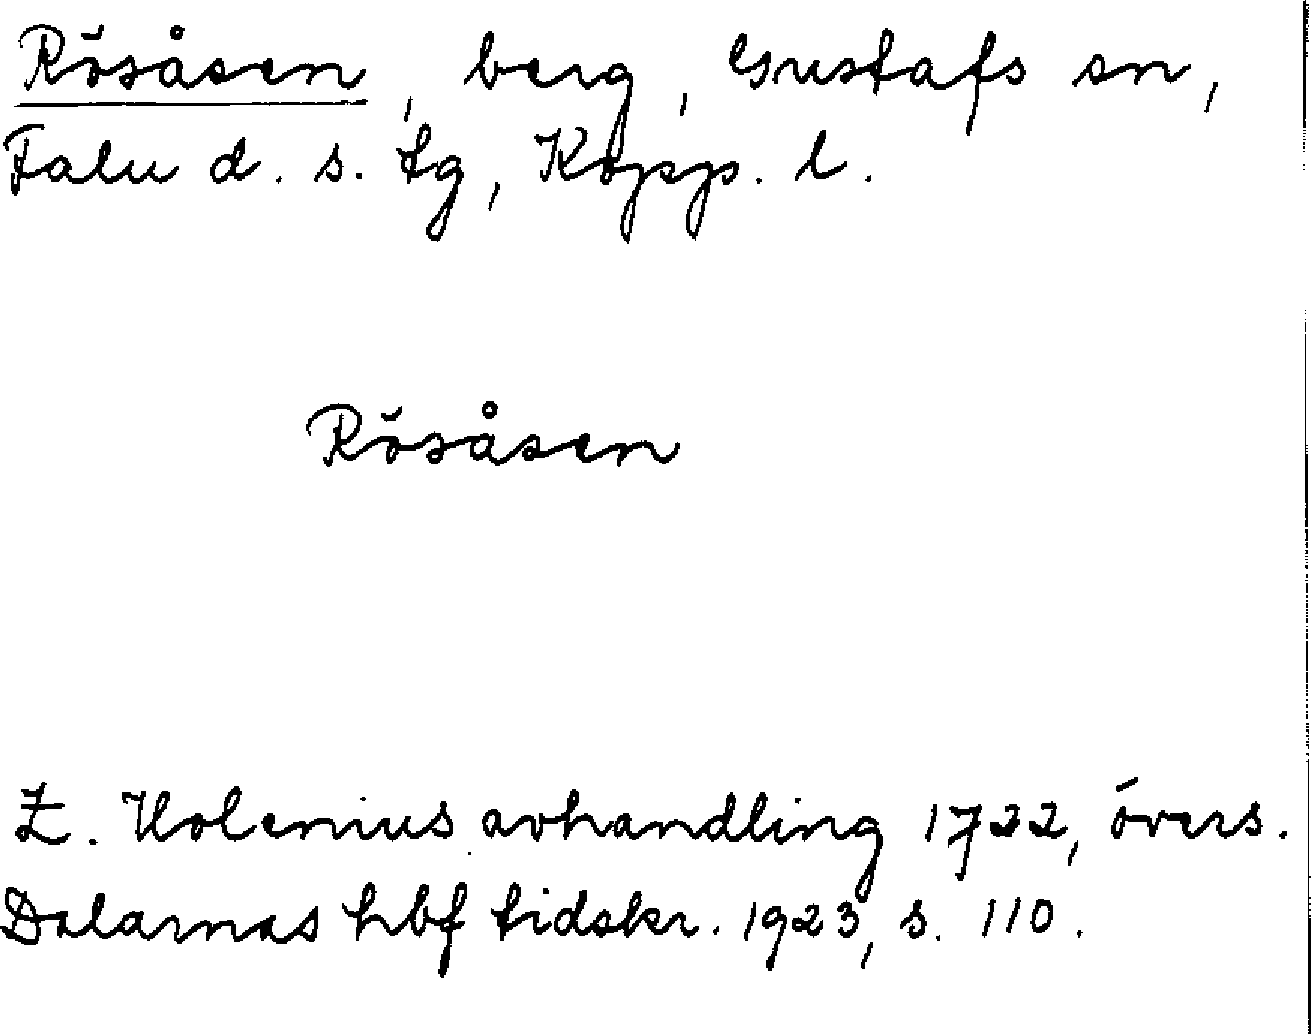 Rösåsen, berg, Gustafs sn,
Falu d. s. tg, Kopp. l.
Rösåsen
Z. Holenius avhandling 1722, övers.
Dalarnas hbf tidskr. 1923, s. 110.